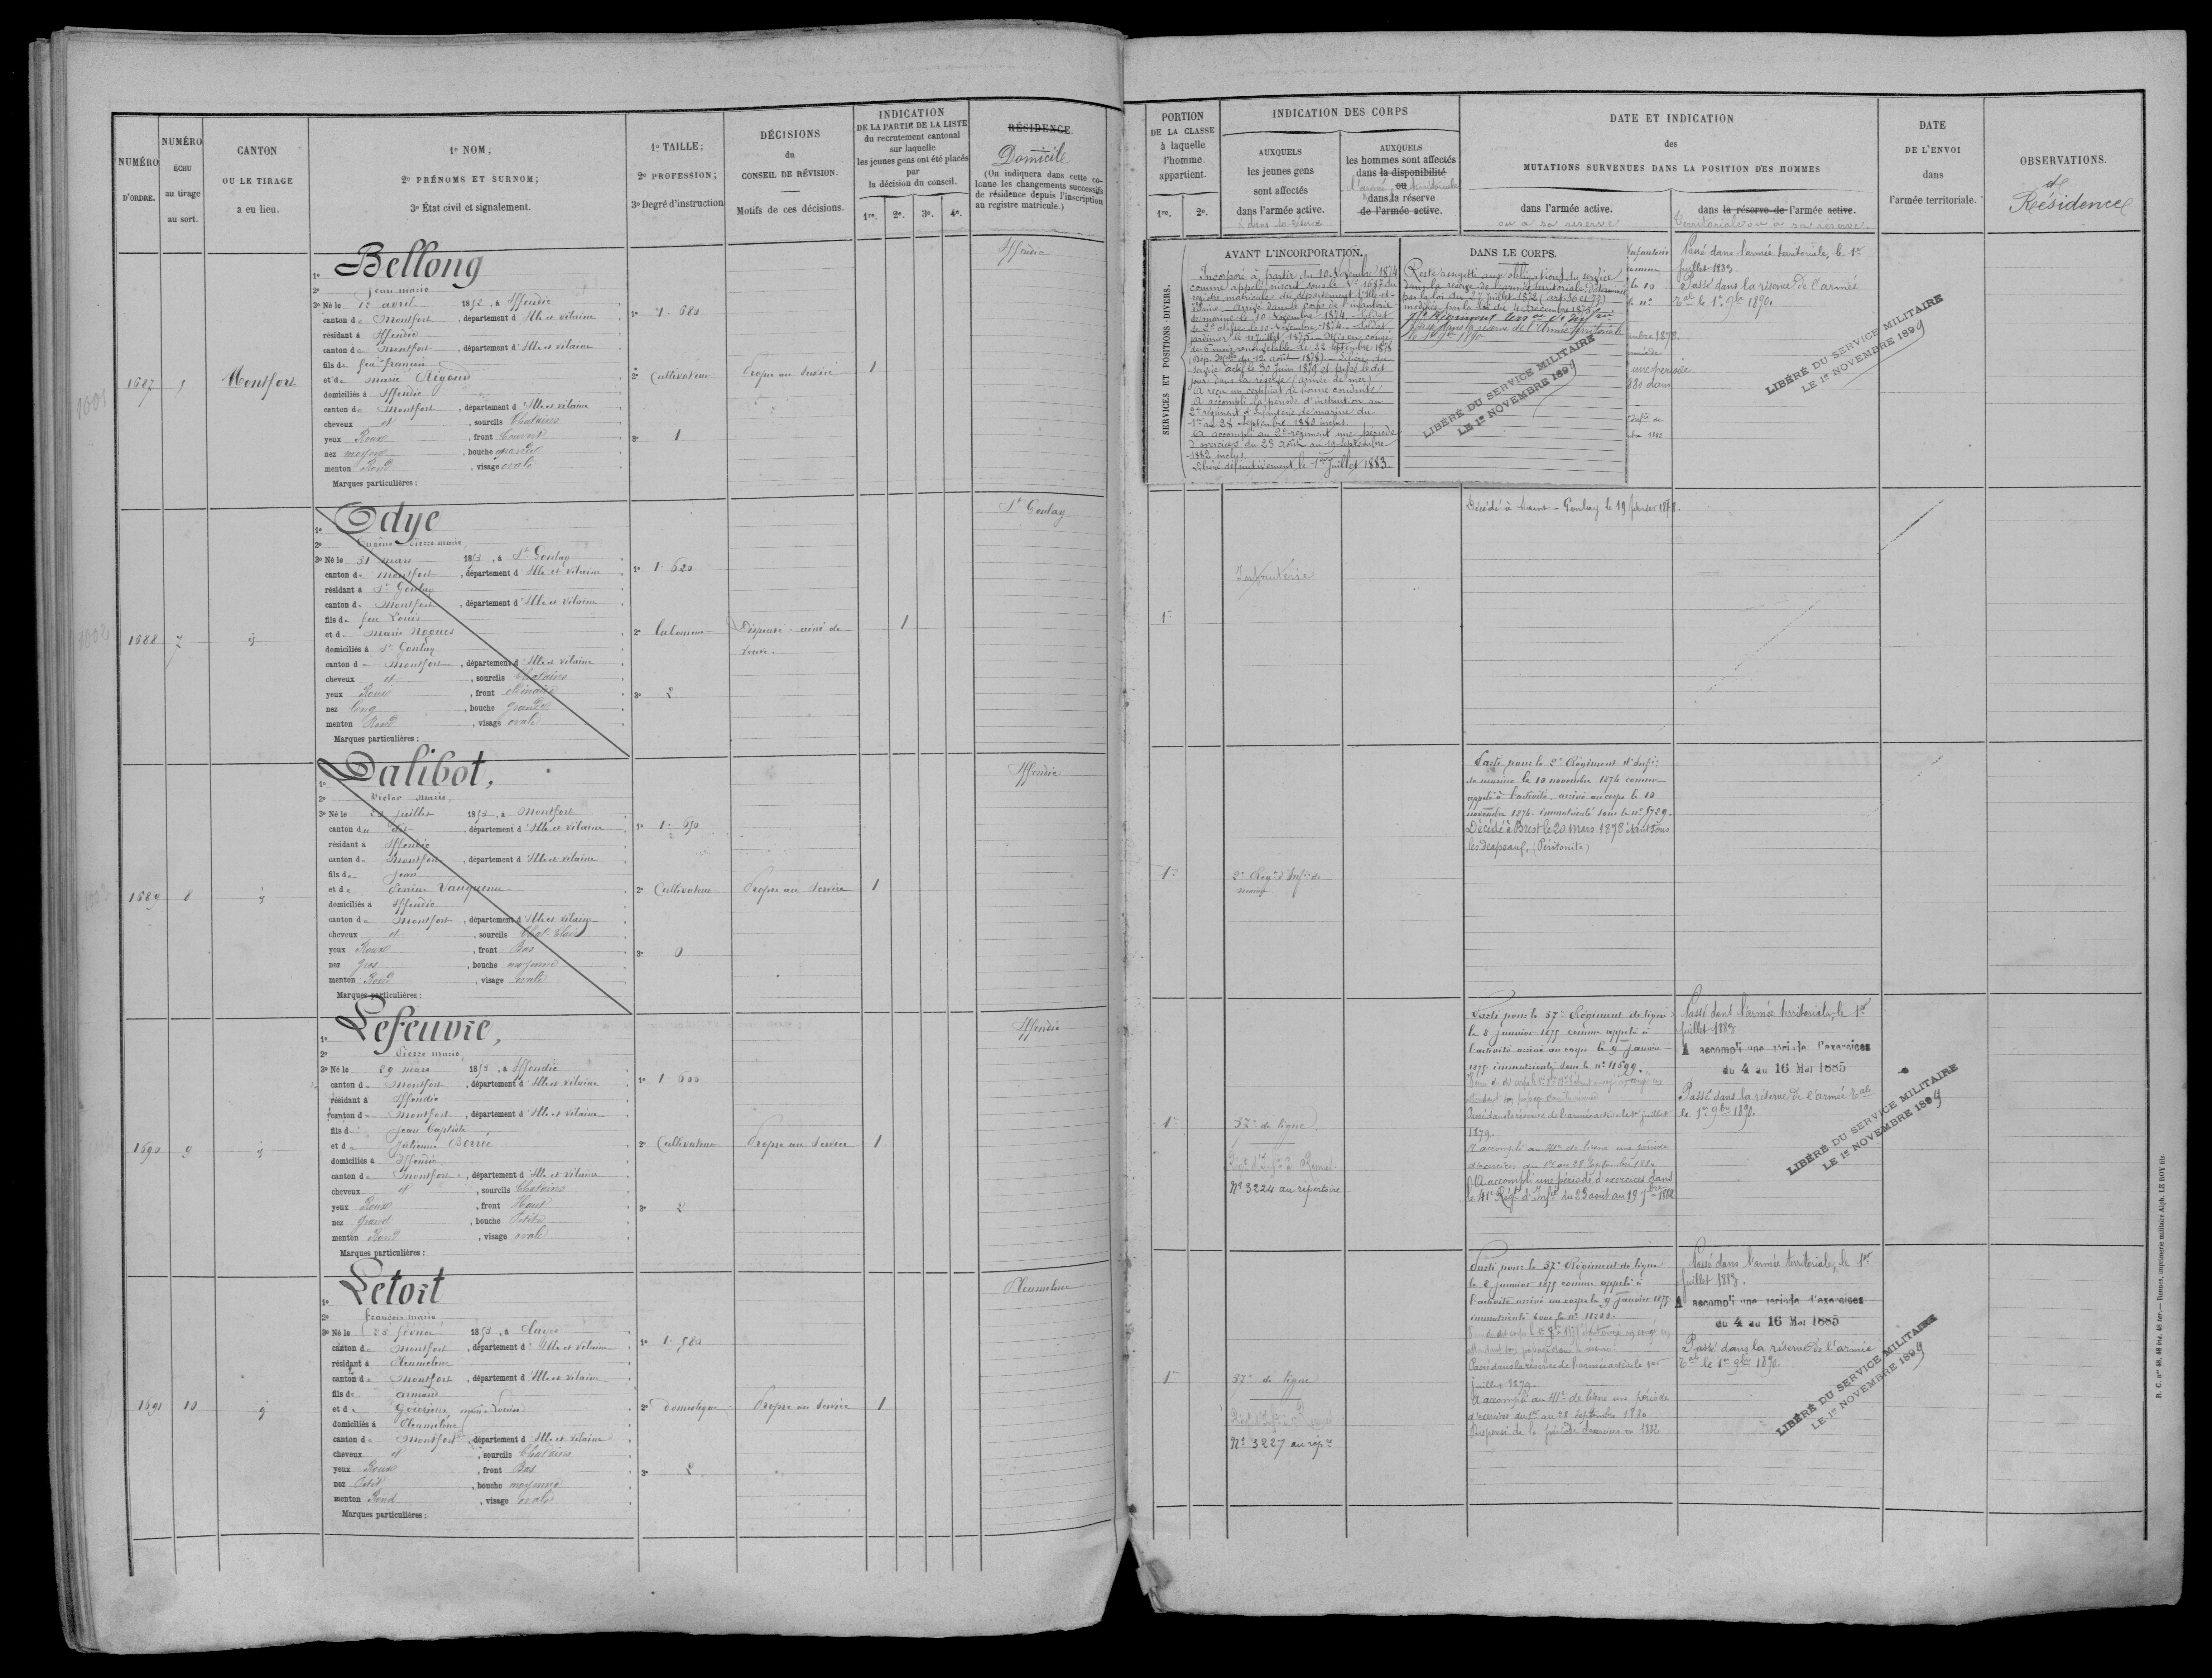 NUMÉRO
D'ORDRE.
NUMÉRO
ÉCHU
au tirage
au sort.
CANTON
OU LE TIRAGE
a eu lieu.
1º NOM;
2º PRÉNOMS ET SURNOM;
3º État civil et signalement.
1º TAILLE;
2º PROFESSION;
3º Degré d'instruction
DÉCISIONS
du
CONSEIL DE RÉVISION.
Motifs de ces décisions.
INDICATION
DE LA PARTIE DE LA LISTE
du recrutement cantonal
sur laquelle
les jeunes gens ont été placés
par
la décision du conseil.
1re. 2e. 3e. 4e.
RÉSIDENCE.
Domicile
(On indiquera dans cette co-
lonne les changements successifs
de résidence depuis l'inscription
au registre matricule.)
1687
5
Montfort
1º Bellong
2º Jean marie
3º Né le 12 avril 185 , à Iffendic
canton de Montfort , département d'Ille et Vilaine
résidant à Iffendic
canton de Montfort , département d'Ille et vilaine
fils de feu françois
et de marie Régond
domiciliés à Iffendic
canton de Montfort , département d'Ille et vilaine
cheveux et , sourcils Chatains
yeux Roux , front Couvert
nez moyen , bouche grande
menton Rond , visage ovale
Marques particulières :
1º 1. 680
2º Cultivateur
3º 1
Propre au Service
1
Iffendic
1688
7
id
1º Odye
2º Eugène Pierre marie
3º Né le 31 mars 1853 , à St Gonlay
canton de Montfort , département d'Ille et Vilaine
résidant à St Gonlay
canton de Montfort , département d'Ille et vilaine
fils de feu Louis
et de Marie Nogues
domiciliés à St Gonlay
canton de Montfort , département d'Ille et vilaine
cheveux et , sourcils Chatains
yeux Roux , front ordinaire
nez long , bouche grande
menton Rond , visage ovale
Marques particulières :
1º 1. 620
2º laboureur
3º 2
Dispensé. ainé de
veuve.
1
St Gonlay
1689
8
id
1º Dalibot,
2º Victor Marie,
3º Né le juillet 1853 , à Montfort
canton du dit , département d'Ille et vilaine
résidant à Iffendic
canton de Montfort , département d'Ille et vilaine
fils de Jean
et de Perrine Vauquenu
domiciliés à Iffendic
canton de Montfort , département d'Ille et vilaine
cheveux et , sourcils Chat. Clairs
yeux Roux , front Bas
nez gros , bouche moyenne
menton Rond , visage ovale
Marques particulières :
1º 1. 650
2º Cultivateur
3º 0
Propre au Service
1
Iffendic
1690
9
id
1º Lefeuvre,
2º Pierre marie,
3º Né le 29 mars 1853 , à Iffendic
canton de Montfort , département d'Ille et vilaine
résidant à Iffendic
canton de Montfort , département d'Ille et vilaine
fils de Jean Baptiste
et de Julienne Berrée
domiciliés à Iffendic
canton de Montfort , département d'Ille et vilaine
cheveux et , sourcils Chatains
yeux Roux , front Haut
nez grand , bouche Petite
menton Rond , visage ovale
Marques particulières :
1º 1. 600
2º Cultivateur
3º 2
Propre au Service
1
Iffendic
1691
10
id
1º Letort
2º françois marie
3º Né le 23 février 1853 , à Clayes
canton de Montfort , département d'Ille et vilaine
résidant à Pleumeleuc
canton de Montfort , département d'Ille et vilaine
fils de armand
et de marie Louise
domiciliés à Pleumeleuc
canton de Montfort , département d'Ille et vilaine
cheveux et , sourcils Chatains
yeux Roux , front Bas
nez Petit , bouche moyenne
menton Rond , visage ovale
Marques particulières :
1º 1. 580
2º domestique
3º 2
Propre au Service
1
Pleumeleuc
PORTION
DE LA CLASSE
à laquelle
l'homme
appartient.
1re. 2e.
INDICATION DES CORPS
AUXQUELS
les jeunes gens
sont affectés
dans l'armée active.
AUXQUELS
les hommes sont affectés
dans la disponibilité
ou
l'armée territoriale
dans la réserve
de l'armée active.
DATE ET INDICATION
des
MUTATIONS SURVENUES DANS LA POSITION DES HOMMES
dans l'armée active.
ou a sa réserve
dans la réserve de l'armée active.
territoriale ou a sa réserve.
DATE
DE L'ENVOI
dans
l'armée territoriale.
OBSERVATIONS.
et
Résidence
SERVICES ET POSITIONS DIVERS.
AVANT L'INCORPORATION.
Incorporé à partir du 10 Novembre 1874
comme appelé, inscrit sous le Nº 1687 du
registre matricule du département d'Ille-et-
Vilaine. Arrivé dans le corps de l'infanterie
de marine le 10 Novembre 1874. Soldat
de 2e classe le 10 Novembre 1874. Soldat
premier le 11 juillet 1875. Mis en congé
de 6 mois renouvelable le 22 Septembre 1878
(Dép. Melle du 12 août 1878). Libéré du
service actif le 30 Juin 1879 et passé le dit
jour dans la réserve (armée de mer)
A reçu un certificat de bonne conduite
A accompli la période d'instruction au
2e régiment d'infanterie de marine du
1er au 28 Septembre 1880 inclus.
A accompli au 2e régiment une période
d'exercices du 23 Août au 19 Septembre
1882 inclus
Libéré définitivement le 1er Juillet 1883.
DANS LE CORPS.
Reste assujetti aux obligations du service
dans la réserve de l'armée territoriale, déterminé
par la loi du 27 juillet 1872 (art. 36 et 77)
modifiée par la loi du 4 Décembre 1875
passé dans la réserve de l'Armée territoriale
le 1er 9bre 1890
LIBÉRÉ DU SERVICE MILITAIRE
LE 1er NOVEMBRE 1899
Passé dans l'armée territoriale, le 1er
juillet 1883.
Passé dans la réserve de l'armée
tale le 1er 9bre 1890.
LIBÉRÉ DU SERVICE MILITAIRE
LE 1er NOVEMBRE 1899
1re
Infanterie
Décédé à Saint-Gonlay le 19 février 1878.
1re
2e Regt d'Infie de
marine
Parti pour le 2e Régiment d'Infie
de marine le 10 novembre 1874 comme
appelé à l'activité, arrivé au corps le 10
novembre 1874. immatriculé sous le nº 5729.
Décédé à Brest le 20 mars 1878 étant sous
les drapeaux, (Péritonite)
1re
37e de ligne
Nº 3224 au répertoire
Parti pour le 37e Régiment de ligne
le 8 janvier 1875 comme appelé à
l'activité arrivé au corps le 9 janvier
1875 immatriculé sous le nº 11599.
Passé dans la réserve de l'armée active le 1er juillet
1879.
A accompli au 41e de ligne une période
d'exercices du 1er au 28 Septembre 1880
A accompli une période d'exercices dans
le 41e Régt d'Infie du 23 aout au 19 7bre 1882
Passé dans l'armée territoriale, le 1er
juillet 1883
A accompli une période d'exercices
du 4 au 16 Mai 1885
Passé dans la réserve de l'armée tale
le 1er 9bre 1890.
LIBÉRÉ DU SERVICE MILITAIRE
LE 1er NOVEMBRE 1899
1re
37e de ligne
Nº 3227 au répre
Parti pour le 37e Régiment de ligne
le 8 janvier 1875 comme appelé à
l'activité arrivé au corps le 9 janvier 1875
immatriculé sous le nº
Passé dans la réserve de l'armée active le 1er
juillet 1879
A accompli au 41e de ligne une période
d'exercices du 1er au 28 Septembre 1880
Dispensé de la période d'exercices en 1882
Passé dans l'armée territoriale, le 1er
juillet 1883.
A accompli une période d'exercices
du 4 au 16 Mai 1885
Passé dans la réserve de l'armée
tale le 1er 9bre 1890
LIBÉRÉ DU SERVICE MILITAIRE
LE 1er NOVEMBRE 1899
Rennes, imprimerie militaire Alph. LE ROY fils